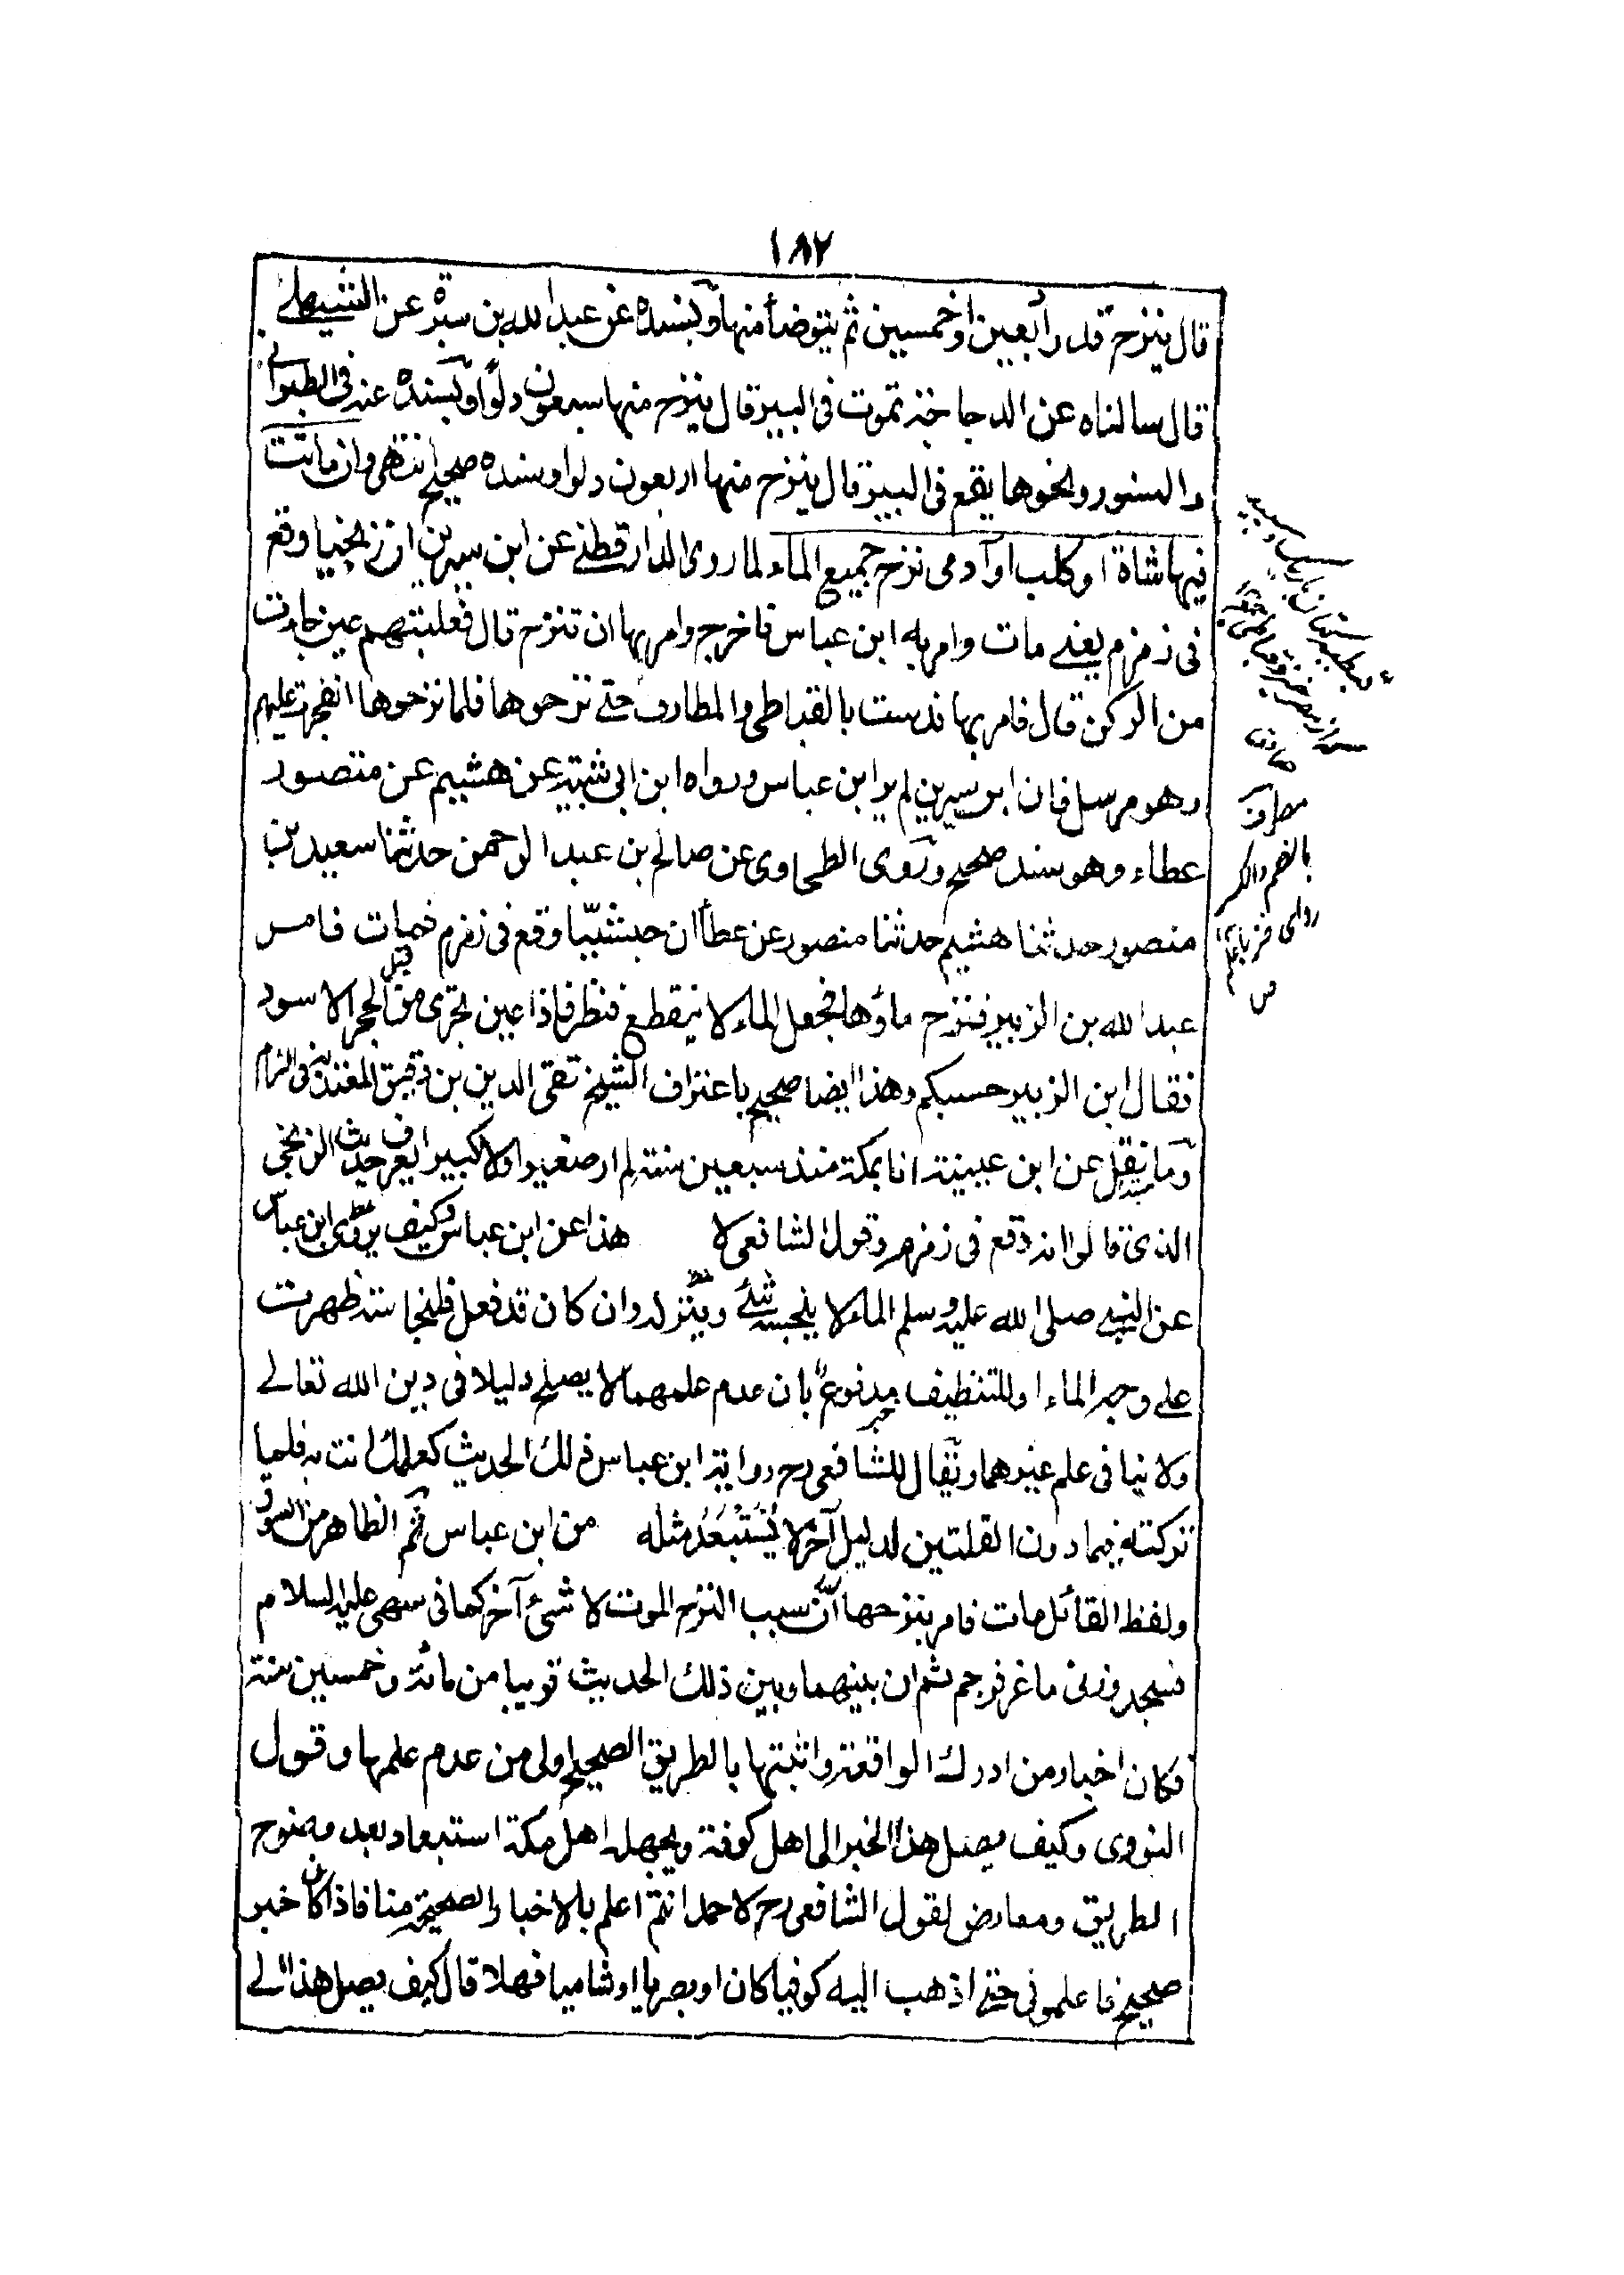 ١٨٢
قال ينزح قدر أربعين او خمسين ثم يتوضأ منها وبسنده عن عبدالله بن سبرة عن الشعبي
قال سالناه عن الدجاجة تموت فى البير قال ينزح منها سبعون دلوا وبسنده عنه فى الطير
والسنور ونحوها يقع فى البير قال ينزح منها اربعون دلوا وسنده صحيح انتهى وان ماتت
فيها شاة او كلب او آدمى نزح جميع الماء لما روى الدارقطنے عن ابن سيرين ان زنجيا وقع
فى زمزم يعنے مات وامر به ابن عباس فاخرج وامر بها ان تنزح قال فغلبتهم عين جاءت
من الركن قال فامر بها فدست بالقباطى والمطارف حتے نزحوها فلما نزحوها انفجرت عليهم
وهو مرسل فان ابن سيرين لم ير ابن عباس ورواه ابن ابى شيبة عن هشيم عن منصور
عطاء وهو سند صحيح وروى الطحاوى عن صالح بن عبد الرحمن حدثنا سعيد بن
منصور حدثنا هشيم حدثنا منصور عن عطاأن حبشيّا وقع فى زمزم فمات فامر
عبدالله بن الزبير فنزح ماؤها فجعل الماء لا ينقطع فنظر فاذا عين تجرى من قبل الحجر الاسود
فقال ابن الزبير حسبكم وهذا ايضا صحيح باعتراف الشيخ تقى الدين بن دقيق العيد فى الامام
وما نقل عن ابن عيينة انا بمكة منذ سبعين سنة لم ار صغيرا ولا كبيرا يعرف حديث الزنجى
الذى قالوا انه وقع فى زمزم وقول الشافعى لا هذا عن ابن عباس وكيف يروى ابن عباس
عن النبے صلى الله عليه وسلم الماء لا ينجسه شئ ويتركه وان كان قد فعل فلنجاسة ظهرت
علے وجه الماء او للتنظيف مدفوع بان عدم علمهما لا يصلح دليلا فى دين الله تعالے
ولا ينافى علم غيرهما ويقال للشافعى رح رواية ابن عباس ذلك الحديث كعلمك انت به فلما
تركته فيما دون القلتين لدليل آخر لا يُسْتَبْعَدُ مثله من ابن عباس ثم الظاهر من السوق
ولفظ القائل مات فامر بنزحها أنّ سبب النزح الموت لا شئ آخر كما فى سهى عليه السلام
فسجد وزنى ماعز فرجم ثم ان بينهما وبين ذلك الحديث قريبا من مائة وخمسين سنة
فكان اخبار من ادرك الواقعة واثبتها بالطريق الصحيح اولى من عدم علمها وقول
النووى وكيف يصل هذا الخبر الى اهل كوفة ويجهله اهل مكة استبعاد بعد وضوح
الطريق ومعارض لقول الشافعى رح لاحمد انتم اعلم بالاخبار الصحيحة منا فاذا كان خبر
صحيح فاعلمونى حتے اذهب اليه كوفيا كان او بصريا او شاميا فهلا قال كيف يصل هذا الے
مطرف
بالضم والكسر
ص